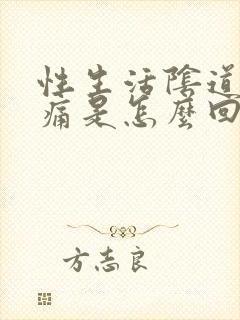 性生活陰道
痛是怎麼回
方志良